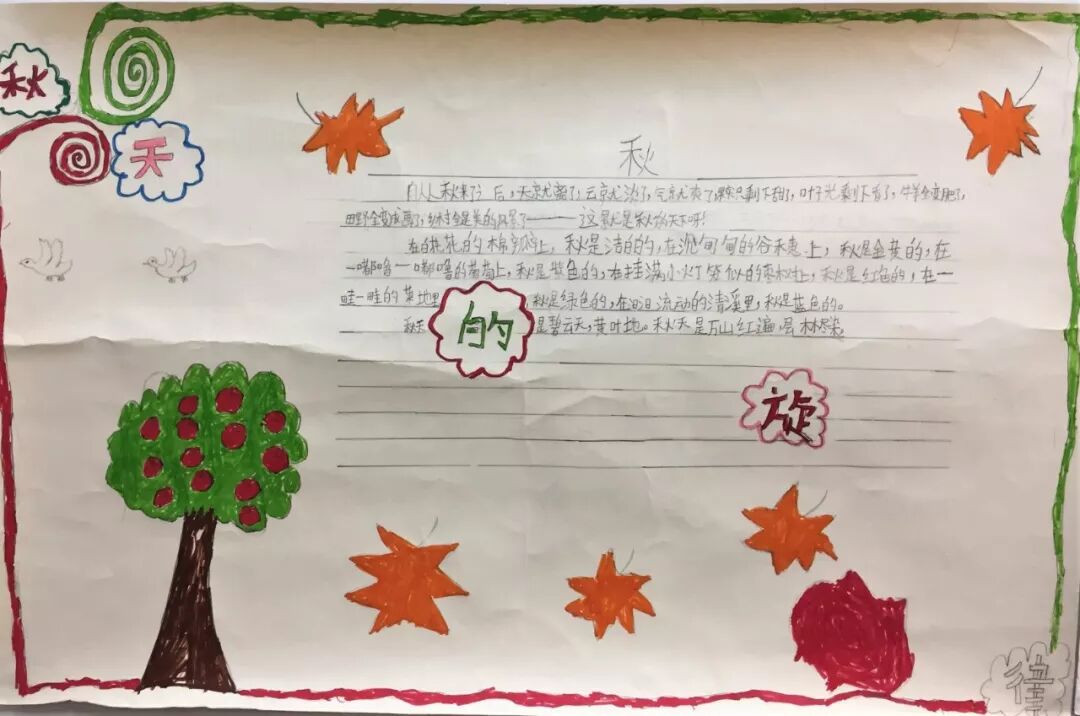 秋
天
的
旋
律
秋
自从秋来了后，天就高了，云就淡了，气就爽了，果只剩下甜了，叶子光剩下香了，牛羊全变肥了，
田野全变成画了，全是美的风景了——这就是秋的天下呀！
在的棉上，秋是洁白的，在沉甸甸的谷穗上，秋是金黄的，在
一嘟噜一嘟噜的葡萄上，秋是紫色的，在挂满小灯笼似的枣树上，秋是红色的，在一
畦一畦的菜地里，秋是绿色的，在汩汩流动的清溪里，秋是蓝色的。
秋天是碧云天，黄叶地。秋天是万山红遍，层林尽染。